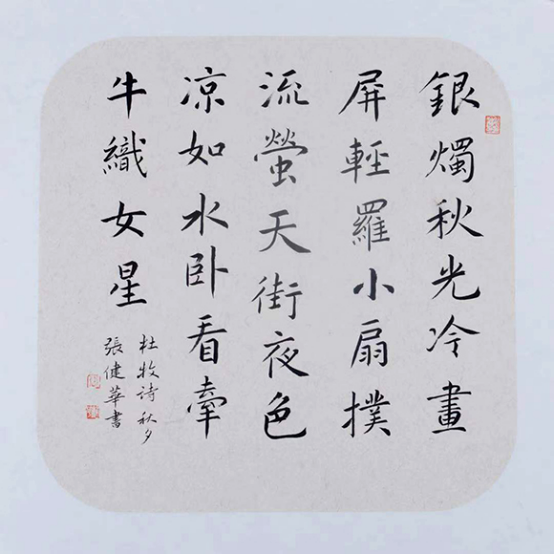 銀燭秋光冷畫
屏輕羅小扇撲
流螢天街夜色
凉如水卧看牽
牛織女星
杜牧詩秋夕
張健華書